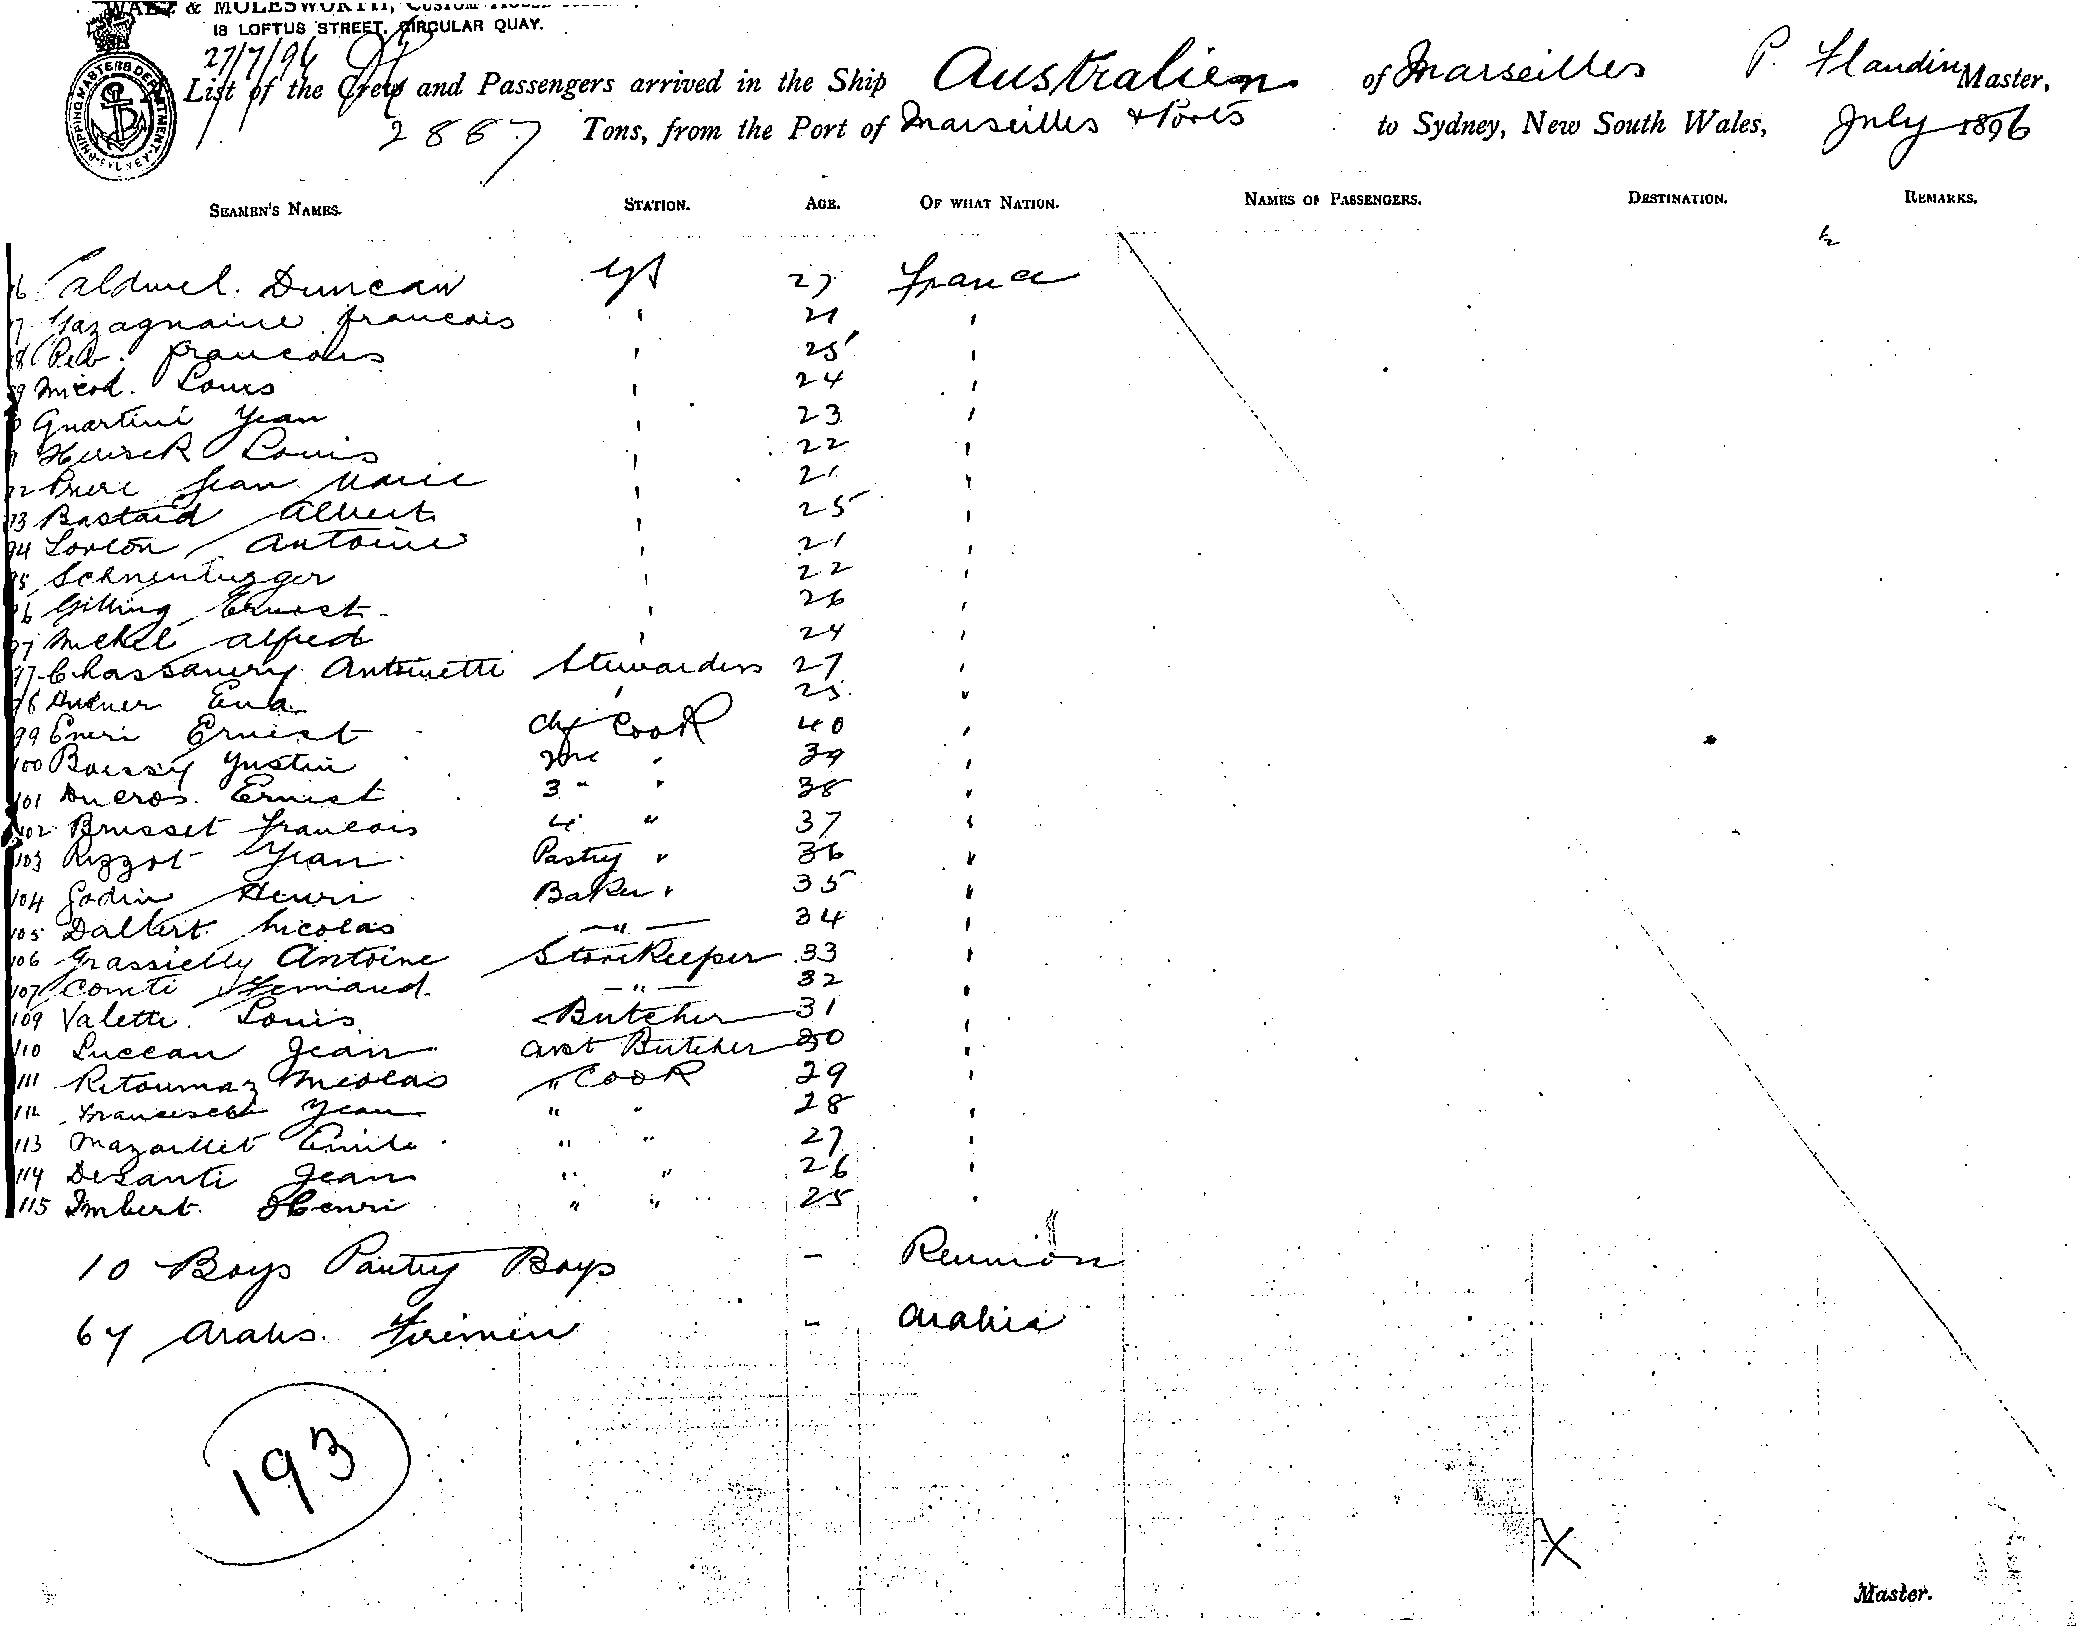 WALZ & MOLESWORTH, CUSTOM HOUSE
18 LOFTUS STREET, CIRCULAR QUAY.
27/7/96
SHIPPING MASTERS DEPARTMENT SYDNEY
List of the Crew and Passengers arrived in the Ship Australien of Marseilles P. Flandin Master,
2887 Tons, from the Port of Marseilles & Ports to Sydney, New South Wales, July 1896
SEAMEN'S NAMES. STATION. AGE. OF WHAT NATION. NAMES OF PASSENGERS. DESTINATION. REMARKS.
Caldwel. Duncan 27 France
Gazagnaire francois ' 21 '
francois ' 25 '
Micod. Louis ' 24 '
Guartini Jean ' 23 '
Louis ' 22 '
Jean Marie ' 21 '
93 Bastard Albert ' 25 '
94 Antoine ' 21 '
95 ' 22 '
96 Gilling Ernest ' 26 '
97 Michel alfred ' 24 '
97 Chassanery Antoinette Stewardess 27 '
98 Eva ' 25 "
99 Eneri Ernest chf Cook 40 '
100 Boissy Justin 2me " 39 '
101 Ducros. Ernest 3 " " 38 '
102 Brusset francois 4 " 37 '
103 Rizzot Jean Pastry " 36 "
104 Godin Henri Baker " 35 "
105 Dalbert Nicolas — " — 34 '
106 Grassielly Antoine StoreKeeper 33 '
107 Comti Fernand. — " — 32 '
109 Valette. Louis Butcher 31 '
110 Luccan Jean asst Butcher 30 '
111 Nicolas " Cook 29 '
112 Jean " " 28 '
113 Mazoillet Emile " " 27 '
114 DeSanti Jean " " 26 '
115 Imbert. Henri " " 25 '
10 Boys Pantry Boys - Reunion
67 Arabs. Firemen - Arabia
193
X
Master.